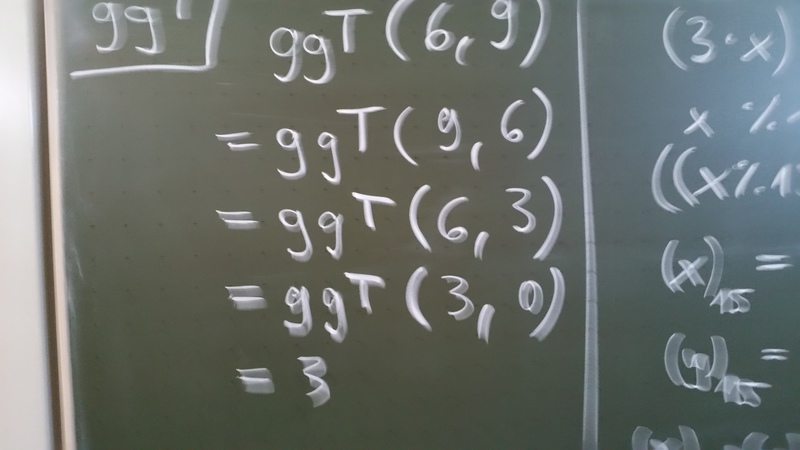 ggT
ggT (6, 9)
= ggT (9, 6)
= ggT (6, 3)
= ggT (3, 0)
= 3
(3·x)
x %
((x%.1
(x)15 =
(y)15 =